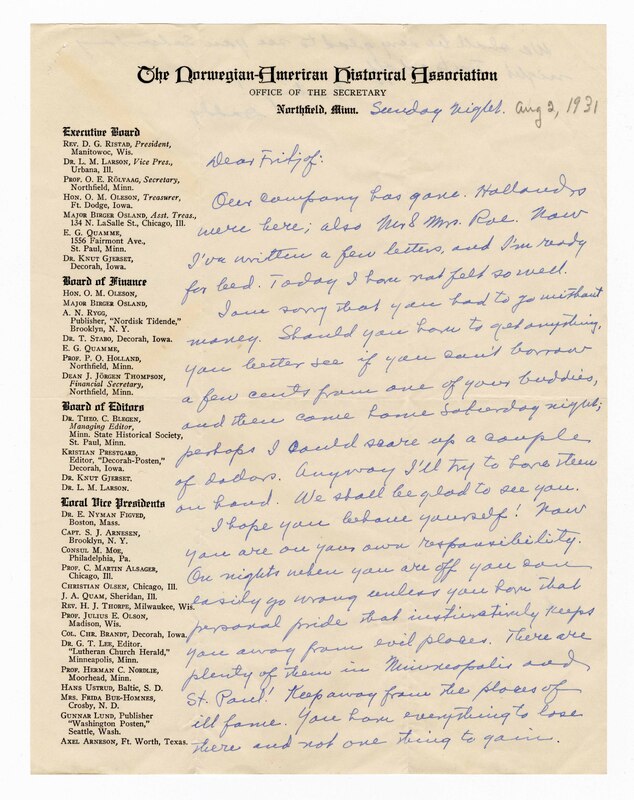 The Norwegian-American Historical Association
OFFICE OF THE SECRETARY
Northfield, Minn. Sunday night. Aug 2, 1931
Executive Board
REV. D. G. RISTAD, President,
Manitowoc, Wis.
DR. L. M. LARSON, Vice Pres.,
Urbana, Ill.
PROF. O. E. RÖLVAAG, Secretary,
Northfield, Minn.
HON. O. M. OLESON, Treasurer,
Ft. Dodge, Iowa.
MAJOR BIRGER OSLAND, Asst. Treas.,
134 N. LaSalle St., Chicago, Ill.
E. G. QUAMME,
1556 Fairmont Ave.,
St. Paul, Minn.
DR. KNUT GJERSET,
Decorah, Iowa.
Board of Finance
HON. O. M. OLESON,
MAJOR BIRGER OSLAND,
A. N. RYGG,
Publisher, "Nordisk Tidende,"
Brooklyn, N. Y.
DR. T. STABO, Decorah, Iowa.
E. G. QUAMME,
PROF. P. O. HOLLAND,
Northfield, Minn.
DEAN J. JÖRGEN THOMPSON,
Financial Secretary,
Northfield, Minn.
Board of Editors
DR. THEO. C. BLEGEN,
Managing Editor,
Minn. State Historical Society,
St. Paul, Minn.
KRISTIAN PRESTGARD,
Editor, "Decorah-Posten,"
Decorah, Iowa.
DR. KNUT GJERSET.
DR. L. M. LARSON.
Local Vice Presidents
DR. E. NYMAN FIGVED,
Boston, Mass.
CAPT. S. J. ARNESEN,
Brooklyn, N. Y.
CONSUL M. MOE,
Philadelphia, Pa.
PROF. C. MARTIN ALSAGER,
Chicago, Ill.
CHRISTIAN OLSEN, Chicago, Ill.
J. A. QUAM, Sheridan, Ill.
REV. H. J. THORPE, Milwaukee, Wis.
PROF. JULIUS E. OLSON,
Madison, Wis.
COL. CHR. BRANDT, Decorah, Iowa.
DR. G. T. LEE, Editor,
"Lutheran Church Herald,"
Minneapolis, Minn.
PROF. HERMAN C. NORDLIE,
Moorhead, Minn.
HANS USTRUD, Baltic, S. D.
MRS. FRIDA BUE-HOMNES,
Crosby, N. D.
GUNNAR LUND, Publisher
"Washington Posten,"
Seattle, Wash.
AXEL ARNESON, Ft. Worth, Texas.
Dear Fritjof:
Our company has gone. Hollands
were here; also Mr & Mrs. Roe. Now
I've written a few letters, and I'm ready
for bed. Today I have not felt so well.
I am sorry that you had to go without
money. Should you have to get anything,
you better see if you can't borrow
a few cents from one of your buddies,
and then come home Saturday night;
perhaps I could scare up a couple
of dollars. Anyway I'll try to have them
on hand. We shall be glad to see you.
I hope you behave yourself! Now
you are on your own responsibility.
On nights when you are off you can
easily go wrong unless you have that
personal pride that instinctively keeps
you away from evil places. There are
plenty of them in Minneapolis and
St. Paul! Keep away from the places of
ill fame. You have everything to lose
there and not one thing to gain.